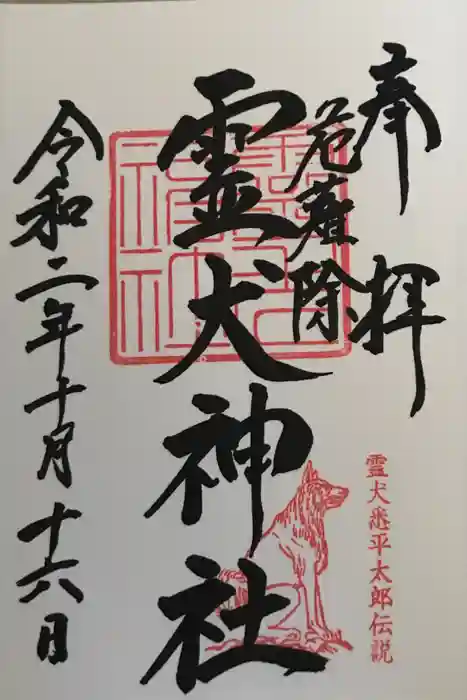 奉拝
危難除
霊犬神社
令和二年十月十六日
霊犬悉平太郎伝説